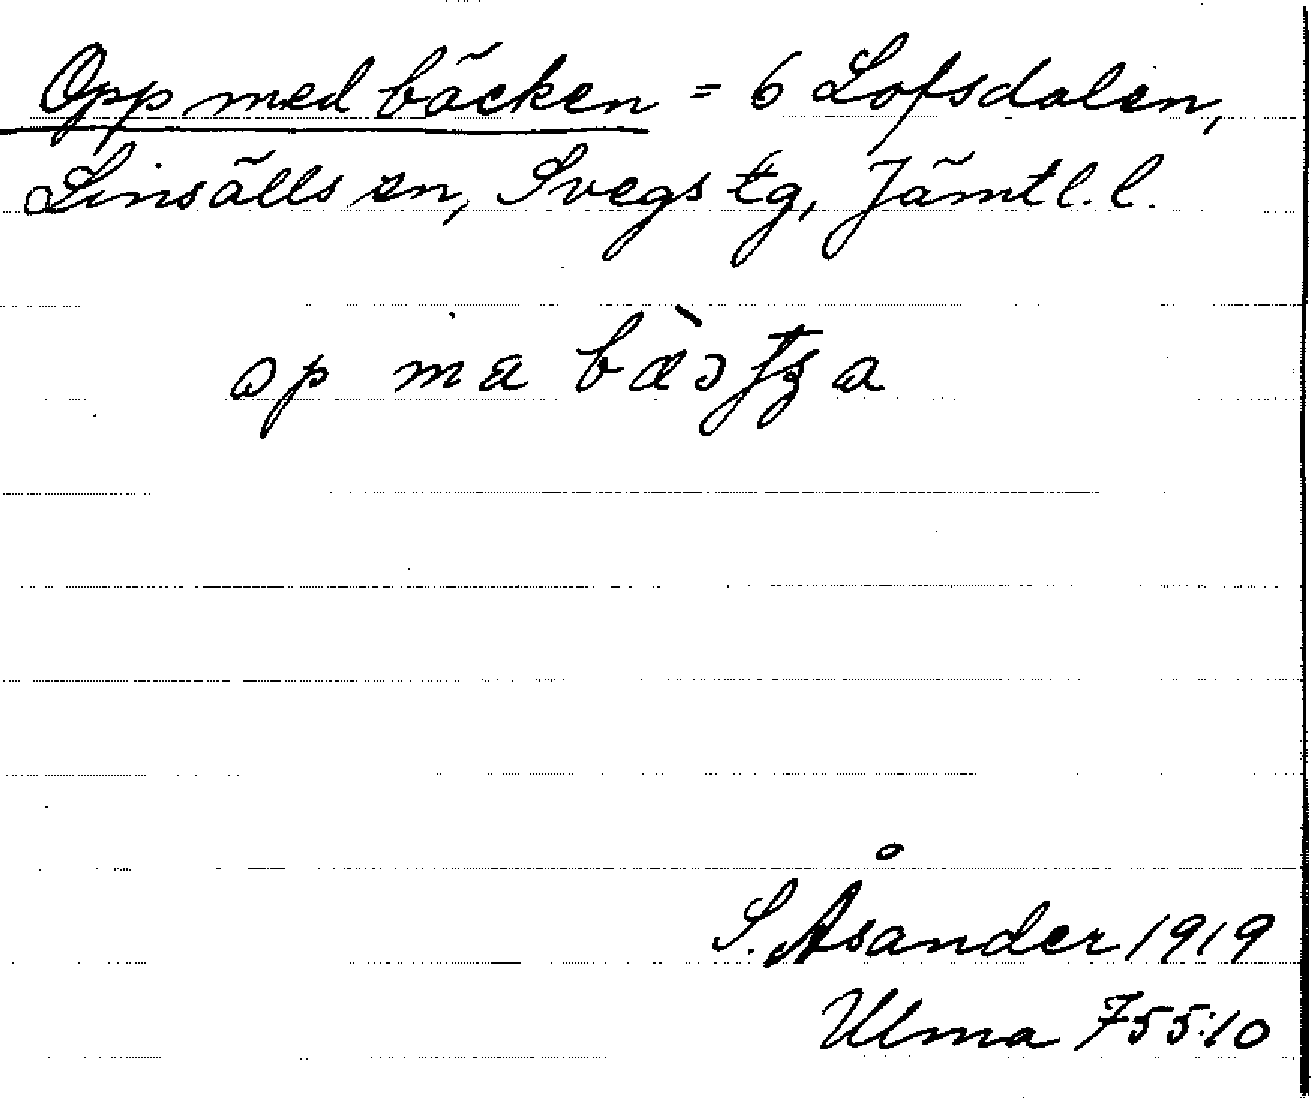 Opp med bäcken = 6 Lofsdalen,
Linsälls sn, Svegs tg, Jämtl.l.
op ma
S. Åsander 1919
Ulma 755:10